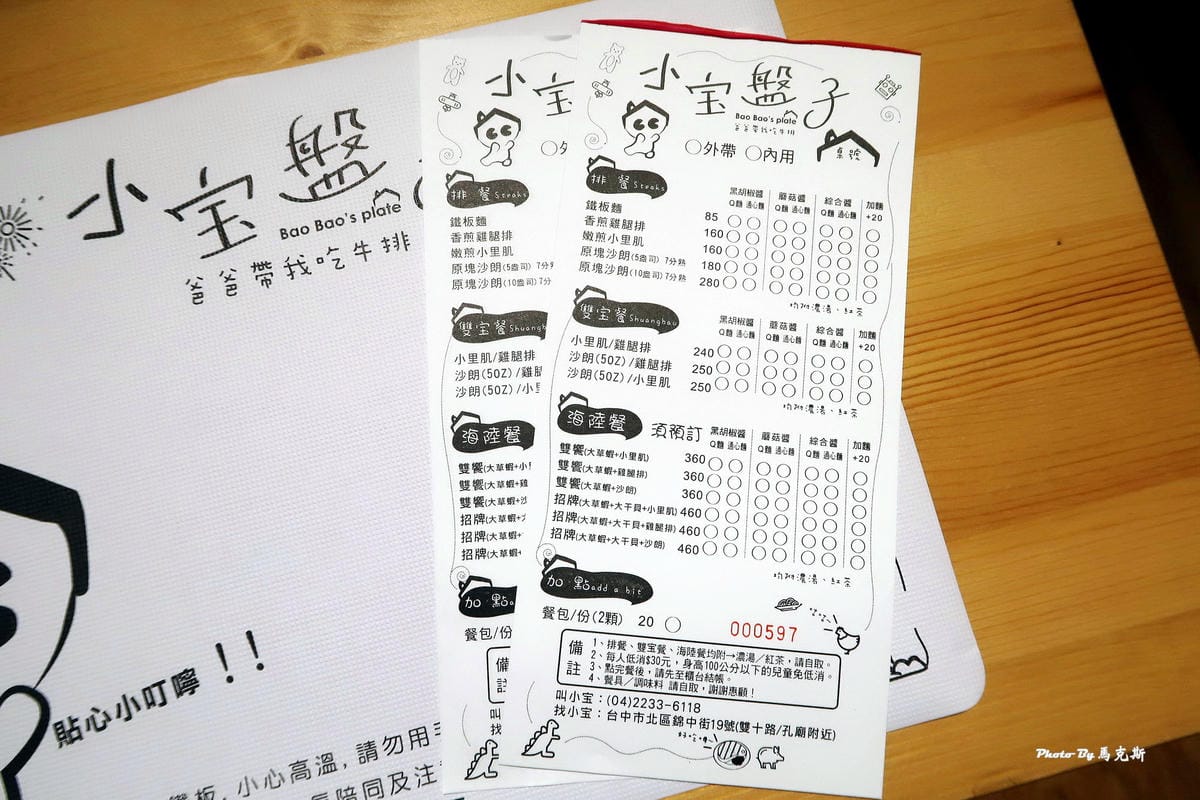 小宝盤子
Bao Bao's plate
爸爸帶我吃牛排
○外帶 ○內用
桌號
排 餐 Steaks
黑胡椒醬 蘑菇醬 綜合醬 加麵
Q麵 通心麵 Q麵 通心麵 Q麵 通心麵 +20
鐵板麵 85
香煎雞腿排 160
嫩煎小里肌 160
原塊沙朗(5盎司) 7分熟 180
原塊沙朗(10盎司) 7分熟 280
均附濃湯、紅茶
雙宝餐 Shuangbau
黑胡椒醬 蘑菇醬 綜合醬 加麵
Q麵 通心麵 Q麵 通心麵 Q麵 通心麵 +20
小里肌/雞腿排 240
沙朗(5OZ)/雞腿排 250
沙朗(5OZ)/小里肌 250
均附濃湯、紅茶
海陸餐 須預訂
黑胡椒醬 蘑菇醬 綜合醬 加麵
Q麵 通心麵 Q麵 通心麵 Q麵 通心麵 +20
雙饗(大草蝦+小里肌) 360
雙饗(大草蝦+雞腿排) 360
雙饗(大草蝦+沙朗) 360
招牌(大草蝦+大干貝+小里肌) 460
招牌(大草蝦+大干貝+雞腿排) 460
招牌(大草蝦+大干貝+沙朗) 460
均附濃湯、紅茶
加 點 add a bit
餐包/份(2顆) 20 ○
000597
備註
1、排餐、雙宝餐、海陸餐均附→濃湯／紅茶，請自取。
2、每人低消$30元，身高100公分以下的兒童免低消。
3、點完餐後，請先至櫃台結帳。
4、餐具／調味料 請自取，謝謝惠顧！
叫小宝：(04)2233-6118
找小宝：台中市北區錦中街19號(雙十路/孔廟附近)
小宝
○外
排 餐 Steaks
鐵板麵
香煎雞腿排
嫩煎小里肌
原塊沙朗(5盎司) 7分
原塊沙朗(10盎司) 7分
雙宝餐 Shuangba
小里肌/雞腿排
沙朗(5OZ)/雞腿
沙朗(5OZ)/小
海陸餐
雙饗(大草蝦+小
雙饗(大草蝦+雞
雙饗(大草蝦+沙
招牌(大草蝦+
招牌(大草蝦+
招牌(大草蝦+
加 點
餐包/份
備註
叫
找
小宝盤
Bao Bao's plate
爸爸帶我吃牛排
貼心小叮嚀！！
鐵板，小心高溫，請勿用手
陪同及注
Photo By 馬克斯